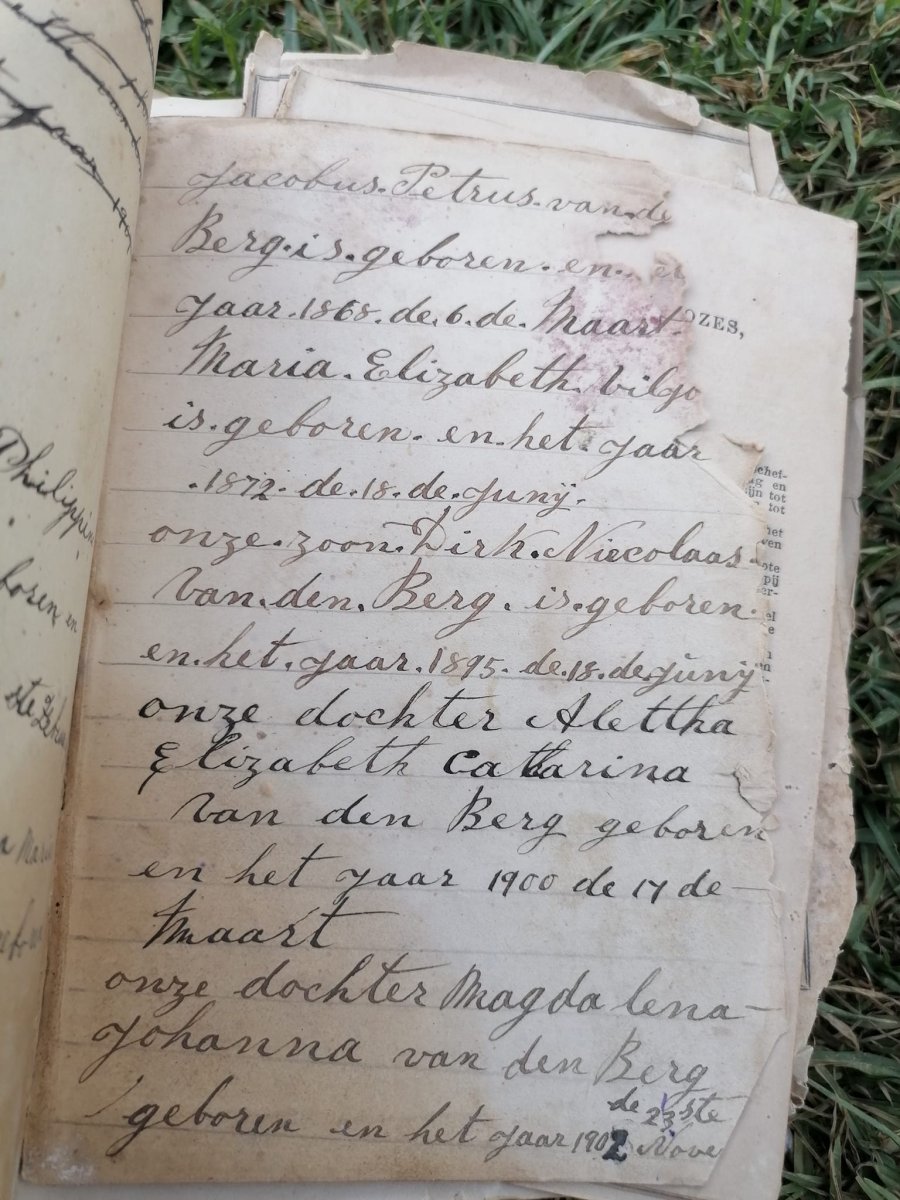 Jacobus. Petrus. van. de
Berg. is. geboren. en.
Jaar. 1868. de. 6. de. Maart.
Maria. Elizabeth. Viljo
is. geboren. en. het. Jaar
. 1872. de. 18. de. Junÿ.
onze. zoon. Dirk. Niecolaas.
van. den. Berg. is. geboren.
en. het. Jaar. 1895. de. 18. de. junÿ
onze dochter Alettha
Elizabeth Catharina
van den Berg geboren
en het Jaar 1900 de 17 de
Maart
onze dochter Magdalena
Johanna van den Berg
de 23ste
geboren en het Jaar 1902 Nove
OZES,
Philippin
boren en